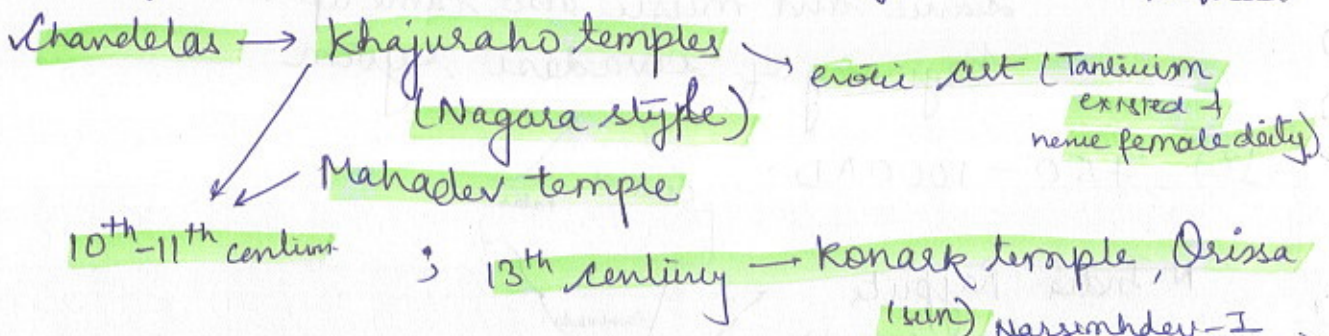 Chandelas → Khajuraho temples
(Nagara style)
erotic art (Tantricism
existed +
hence female deity)
Mahadev temple
10th-11th century
; 13th century — Konark temple, Orissa
(sun) Narsimhdev-I